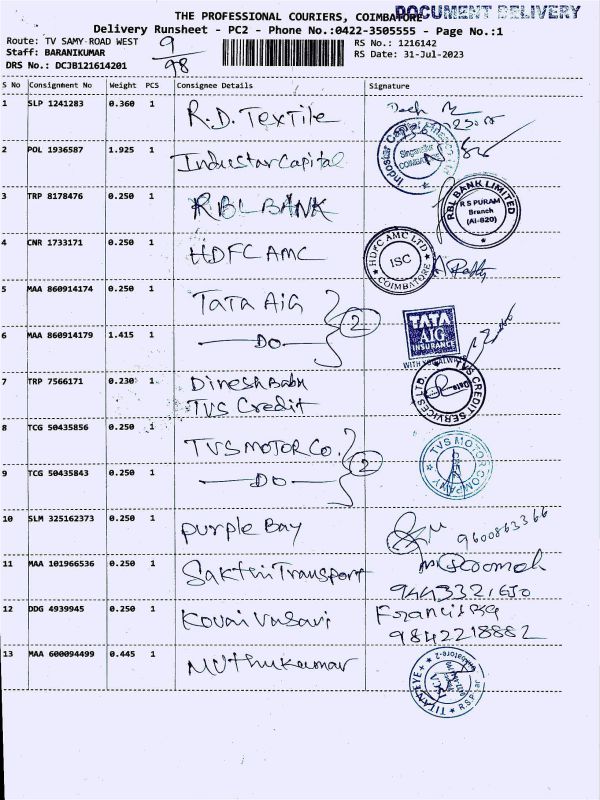 THE PROFESSIONAL COURIERS, COIMBATORE
DOCUMENT DELIVERY
Delivery Runsheet - PC2 - Phone No.:0422-3505555 - Page No.:1
Route: TV SAMY ROAD WEST
Staff: BARANIKUMAR
DRS No.: DCJB121614201
9
98
RS No.: 1216142
RS Date: 31-Jul-2023
S No Consignment No Weight PCS Consignee Details Signature
1 SLP 1241283 0.360 1 R.D. Textile
2 POL 1936587 1.925 1 Industar Capital
COIMBA
3 TRP 8178476 0.250 1 RBL BANK
RBL BANK LIMITED
R S PURAM
Branch
(AI-820)
4 CNR 1733171 0.250 1 HDFC AMC
HDFC AMC LTD
ISC
COIMBATORE
5 MAA 860914174 0.250 1 Tata Aig
2
6 MAA 860914179 1.415 1 —DO—
TATA
AIG
INSURANCE
7 TRP 7566171 0.230 1 Dinesh Babu
TVS Credit
TVS CREDIT SERVICES LTD.
8 TCG 50435856 0.250 1 TVS MOTOR Co.
2
9 TCG 50435843 0.250 1 —DO—
TVS MOTOR
COMPANY
10 SLM 325162373 0.250 1 purple Bay
9600863366
11 MAA 101966536 0.250 1 Sakthi Transport
12 DDG 4939945 0.250 1 Kovai Vasavi
9842218882
13 MAA 600094499 0.445 1 Muthukumar
TITAN EYE+